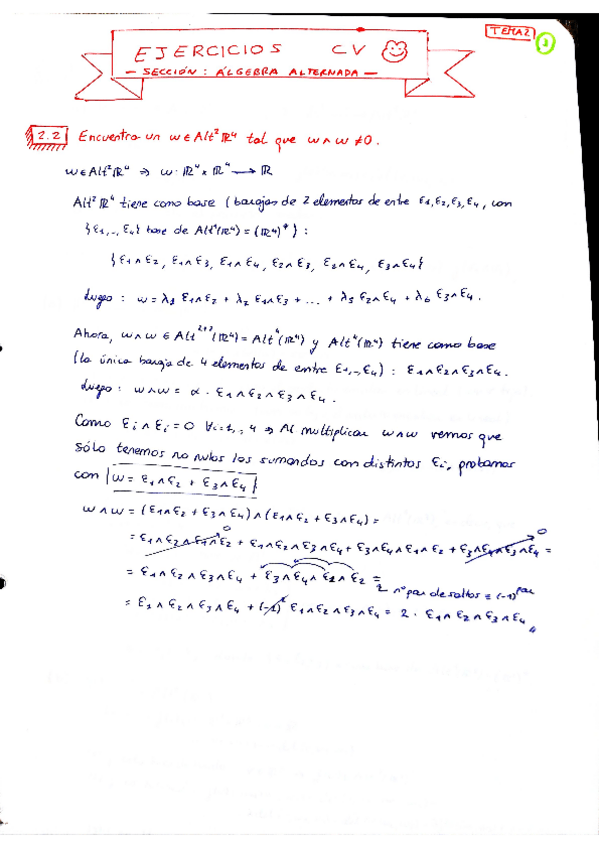 TEMA 2
1
EJERCICIOS CV
- SECCIÓN: ÁLGEBRA ALTERNADA -
2.2 Encuentra un ω ∈ Alt² ℝ⁴ tal que ω ∧ ω ≠ 0.
ω ∈ Alt² ℝ⁴ ⇒ ω: ℝ⁴ × ℝ⁴ → ℝ
Alt² ℝ⁴ tiene como base (barajas de 2 elementos de entre ε₁, ε₂, ε₃, ε₄, con
{ε₁,..., ε₄} base de Alt¹(ℝ⁴) = (ℝ⁴)*):
{ε₁∧ε₂, ε₁∧ε₃, ε₁∧ε₄, ε₂∧ε₃, ε₂∧ε₄, ε₃∧ε₄}
Luego: ω = λ₁ ε₁∧ε₂ + λ₂ ε₁∧ε₃ + ... + λ₅ ε₂∧ε₄ + λ₆ ε₃∧ε₄.
Ahora, ω∧ω ∈ Alt²⁺²(ℝ⁴) = Alt⁴(ℝ⁴) y Alt⁴(ℝ⁴) tiene como base
(la única baraja de 4 elementos de entre ε₁,..., ε₄): ε₁∧ε₂∧ε₃∧ε₄.
Luego: ω∧ω = α · ε₁∧ε₂∧ε₃∧ε₄.
Como εᵢ∧εᵢ = 0 ∀i=1,..,4 ⇒ Al multiplicar ω∧ω vemos que
sólo tenemos no nulos los sumandos con distintos εᵢ, probamos
con ω = ε₁∧ε₂ + ε₃∧ε₄
ω∧ω = (ε₁∧ε₂ + ε₃∧ε₄)∧(ε₁∧ε₂ + ε₃∧ε₄) =
= ε₁∧ε₂∧ε₁∧ε₂ 0 + ε₁∧ε₂∧ε₃∧ε₄ + ε₃∧ε₄∧ε₁∧ε₂ + ε₃∧ε₄∧ε₃∧ε₄ 0 =
= ε₁∧ε₂∧ε₃∧ε₄ + ε₃∧ε₄∧ε₁∧ε₂ =
nº par de saltos = (-1)ᵖᵃʳ
= ε₁∧ε₂∧ε₃∧ε₄ + (-1)² ε₁∧ε₂∧ε₃∧ε₄ = 2 · ε₁∧ε₂∧ε₃∧ε₄